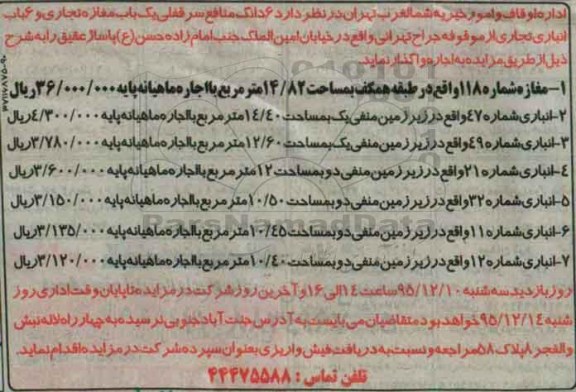 اداره اوقاف و امور خیریه شمالغرب تهران در نظر دارد 6 دانگ منافع سرقفلی یک باب مغازه تجاری و 6 باب
انباری تجاری از موقوفه جراح تهرانی واقع در خیابان امین الملک جنب امام زاده حسن (ع) پاساژ عقیق را به شرح
ذیل از طریق مزایده به اجاره واگذار نماید.
1- مغازه شماره 118 واقع در طبقه همکف بمساحت 14/82 متر مربع با اجاره ماهیانه پایه 36/000/000 ریال
2- انباری شماره 47 واقع در زیرزمین منفی یک بمساحت 14/40 متر مربع با اجاره ماهیانه پایه 4/300/000 ریال
3- انباری شماره 49 واقع در زیرزمین منفی یک بمساحت 12/60 متر مربع با اجاره ماهیانه پایه 3/780/000 ریال
4- انباری شماره 21 واقع در زیرزمین منفی دو بمساحت 12 متر مربع با اجاره ماهیانه پایه 3/600/000 ریال
5- انباری شماره 32 واقع در زیرزمین منفی دو بمساحت 10/50 متر مربع با اجاره ماهیانه پایه 3/150/000 ریال
6- انباری شماره 11 واقع در زیرزمین منفی دو بمساحت 10/45 متر مربع با اجاره ماهیانه پایه 3/135/000 ریال
7- انباری شماره 12 واقع در زیرزمین منفی دو بمساحت 10/40 متر مربع با اجاره ماهیانه پایه 3/120/000 ریال
روز بازدید سه شنبه 95/12/10 ساعت 14 الی 16 و آخرین روز شرکت در مزایده تا پایان وقت اداری روز
شنبه 95/12/14 خواهد بود متقاضیان می بایست به آدرس جنت آباد جنوبی نرسیده به چهار راه لاله نبش
والفجر 8 پلاک 58 مراجعه و نسبت به دریافت فیش واریزی بعنوان سپرده شرکت در مزایده اقدام نماید.
تلفن تماس : 44475588
ParsNamadData